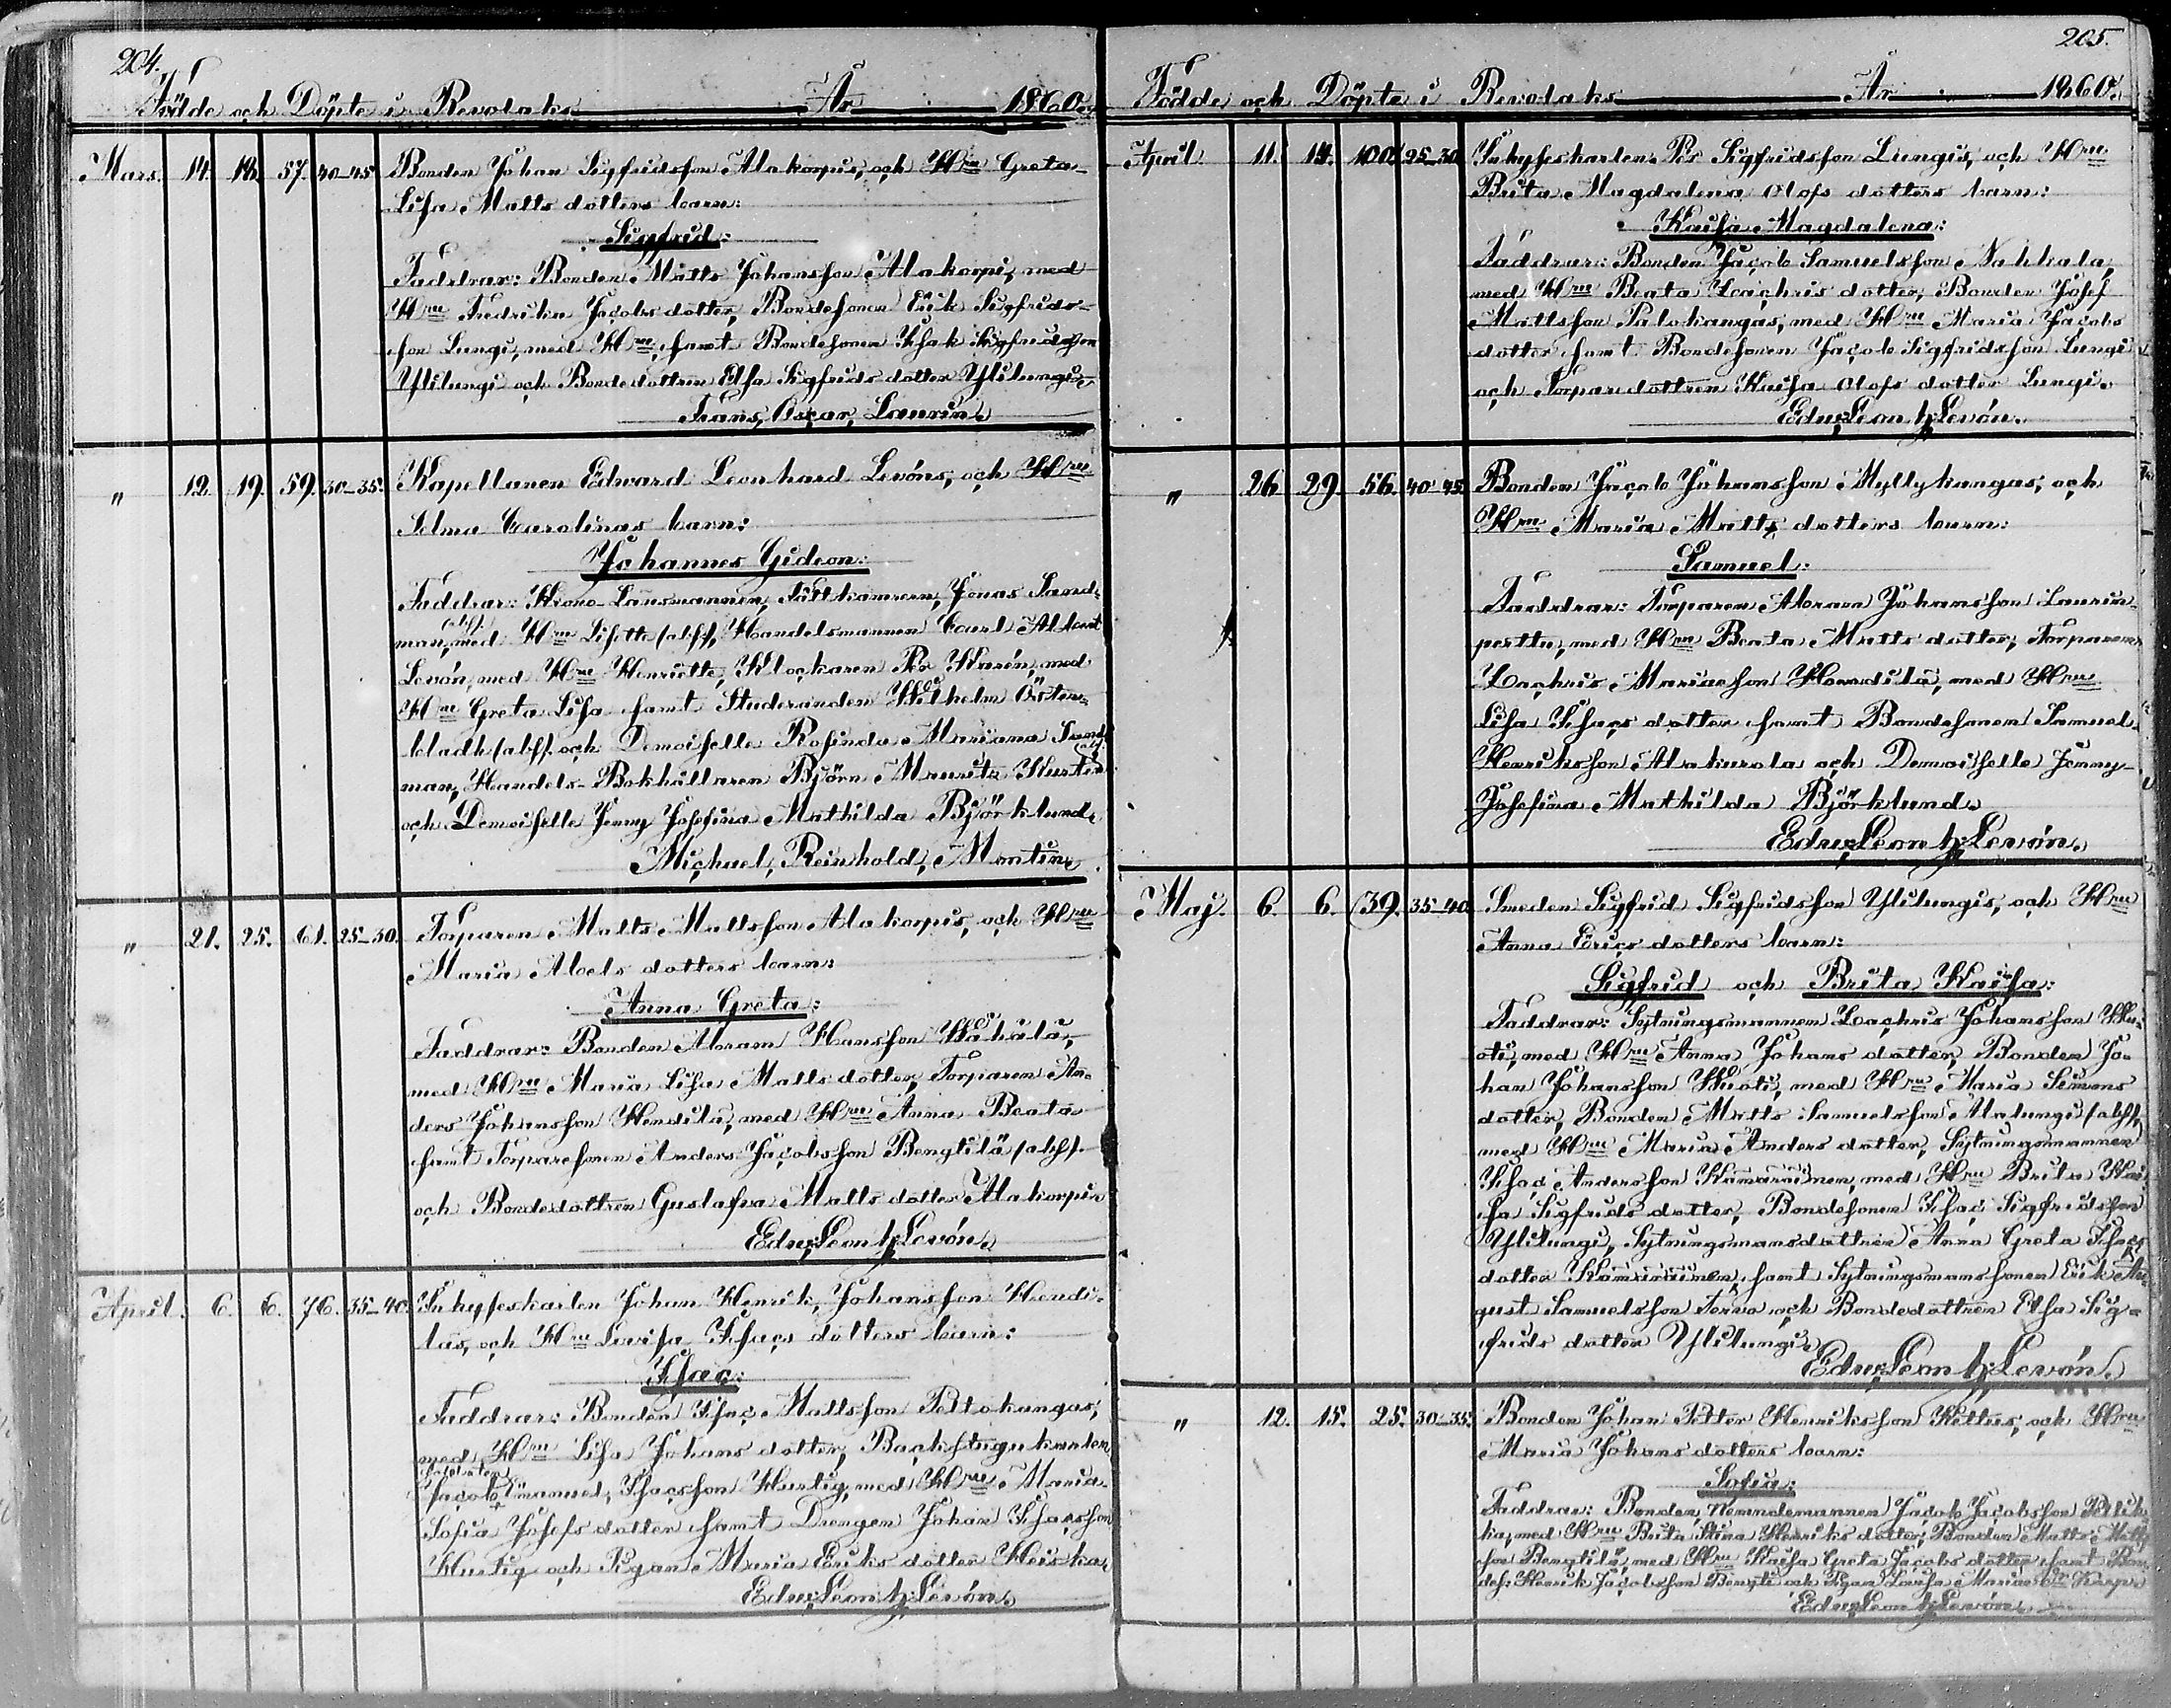 204.
Födde och Döpte i Revolaks År 1860.
Mars. 14. 18. 57. 40-45 Bonden Johan Sigfridsson Alakorpis, och Hru Greta
Lisa Matts dotters barn:
Sigfrid:
Faddrar: Bonden Matts Johansson Alakorpi, med
Hru Fredrika Jacobs dotter, Bondesonen Erik Sigfrids-
son Lungi, med Hru, samt Bondesonen Isak Sigfridsson
Ylilungi och Bondedottren Elsa Sigfrids dotter Ylilungi.
Frans, Oscar, Laurin.
" 12. 19. 59. 30-35. Kapellanen Edward Leonhard Levóns, och Hru
Selma Carolinas barn:
Johannes Gideon:
Faddrar: Krono-Länsmannen, Fältkamrern, Jonas Sand-
man, (abs.) med Hru Lisette (abs), Handelsmannen Carl Albert
Levón, med Hru Henriette, Klockaren Per Karén, med
Hru Greta Lisa samt Studeranden Wilhelm Öster-
bladh (abs). och Demoiselle Rosinda Mariana Sand-
man, (abs.) Handels-Bokhållaren Björn Mauritz Hurtin
och Demoiselle Jenny Josefina Mathilda Björklund.
Michael, Reinhold, Montin.
" 21. 25. 61. 25-30. Torparen Matts Mattsson Alakorpis, och Hru
Maria Abels dotters barn:
Anna Greta:
Faddrar: Bonden Abram Hansson Wähälä,
med Hru Maria Lisa Matts dotter, Torparen An-
ders Johansson Hendilä, med Hru Anna Beata
samt Torparesonen Anders Jacobsson Bengtilä (abs).
och Bondedottren Gustafva Matts dotter Alakorpi.
Edw. Leonh: Levón.
April. 6. 6. 76. 35-40. Inhyseskarlen Johan Henrik, Johansson Hendi-
läs, och Hru Lovisa Isacs dotters barn:
Isac:
Faddrar: Bonden Isac Mattsson Peltokangas,
med Hru Lisa Johans dotter, Backstugukarlen,
Jacob Emanuel, Isacsson Hurtig, med Hru Maria
Sofia Josefs dotter samt Drengen Johan Isacsson
Hurtig och Pigan Maria Eriks dotter Heiska.
Edw. Leonh: Levón.
205.
Födde och Döpte i Revolaks År 1860.
April 11. 14. 100. 25-30 Inhyseskarlen Per Sigfridsson Lungis, och Hru
Brita Magdalena Olofs dotters barn:
Kaisa Magdalena:
Faddrar: Bonden Jacob Samuelsson Nahkala,
med Hru Beata Zachris dotter, Bonden Josef
Mattsson Palokangas, med Hru Maria Jacobs
dotter samt Bondesonen Jacob Sigfridsson Lungi
och Torparedottren Kaisa Olofs dotter Lungi.
Edw. Leonh: Levón.
" 26 29. 56. 40-45. Bonden Jacob Johansson Myllykangas, och
Hru Maria Matts dotters barn:
Samuel:
Faddrar: Torparen Abram Johansson Laurin-
perttu, med Hru Beata Matts dotter, Torparen
Zachris Mariaeson Hendilä, med Hru
Lisa Isacs dotter samt Bondesonen Samuel
Henriksson Alakurola och Demoiselle Jenny
Josefina Mathilda Björklund.
Edw. Leonh: Levón.
Maj. 6. 6. (39. 35-40 Smeden Sigfrid Sigfridsson Ylilungis, och Hru
Anna Erics dotters barn:
Sigfrid och Brita Kaisa:
Faddrar: Sytningsmannen Zachris Johansson Hu-
oti, med Hru Anna Johans dotter, Bonden Jo-
han Johansson Huoti, med Hru Maria Simons
dotter, Bonden Matts Samuelsson Alalungi (abs),
med Hru Maria Anders dotter, Sytningsmannen
Isac Andersson Kämäräinen, med Hru Brita Kai-
sa Sigfrids dotter, Bondesonen Isac Sigfridsson
Ylilungi, Sytningsmansdottren Anna Greta Isacs
dotter Kämäräinen, samt Sytningsmanssonen Erik Au-
gust Samuelsson Terva och Bondedottren Elsa Sig-
frids dotter Ylilungi.
Edw. Leonh: Levón.
" 12. 15. 25. 30-35. Bonden Johan Petter Henriksson Kettus, och Hru
Maria Johans dotters barn:
Sofia:
Faddrar: Bonden, Nemndemannen Jacob Jacobsson Pellik-
ka, med Hru Brita Stina Henriks dotter, Bonden Matts Matts
son Bengtilä, med Hru Kaisa Greta Jacobs dotter samt Bon-
des: Henrik Jacobsson Bengti och Pigan Lovisa
Edw. Leonh: Levón.